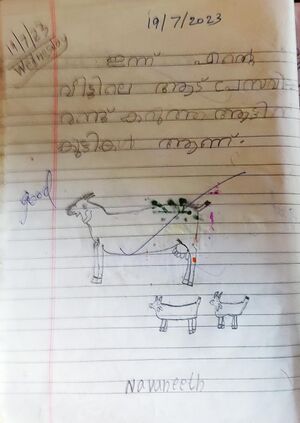 19/7/2023
19/7/23
Wednesday
ഇന്ന് എന്റെ
വീട്ടിലെ ആട് പ്രസവി
രണ്ട് കറുത്ത ആട്ടിൻ
കുട്ടികൾ ആണ്.
good
Navaneeth